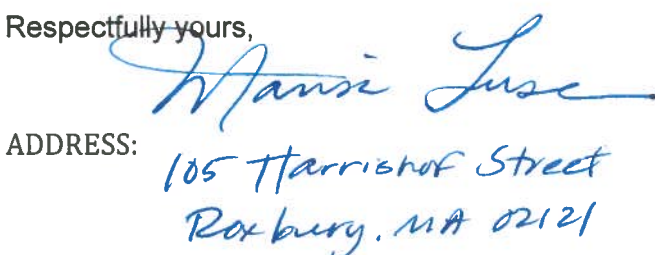 Respectfully yours,
Marisa Luse
ADDRESS:
105 Harrishof Street
Roxbury, MA 02121